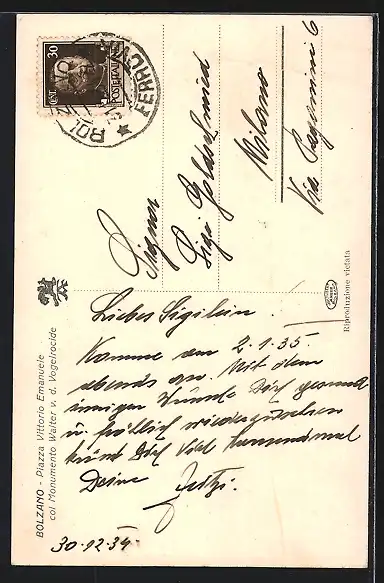 BOLZANO - Piazza Vittorio Emanuele
col Monumento Walter v. d. Vogelrocide
Liebes Sigilein!
Komme am 2.1.35.
abends an. Mit dem
innigen Wunsche Dich gesund
u. fröhlich wiederzusehen
küsst Dich viel tausendmal
Deine
30.12.34.
CENT. 30
POSTE ITALIANE
BOL
FERROVIA
Signor
Sigi Goldschmied
Milano
Via Paganini 6
Riproduzione vietata